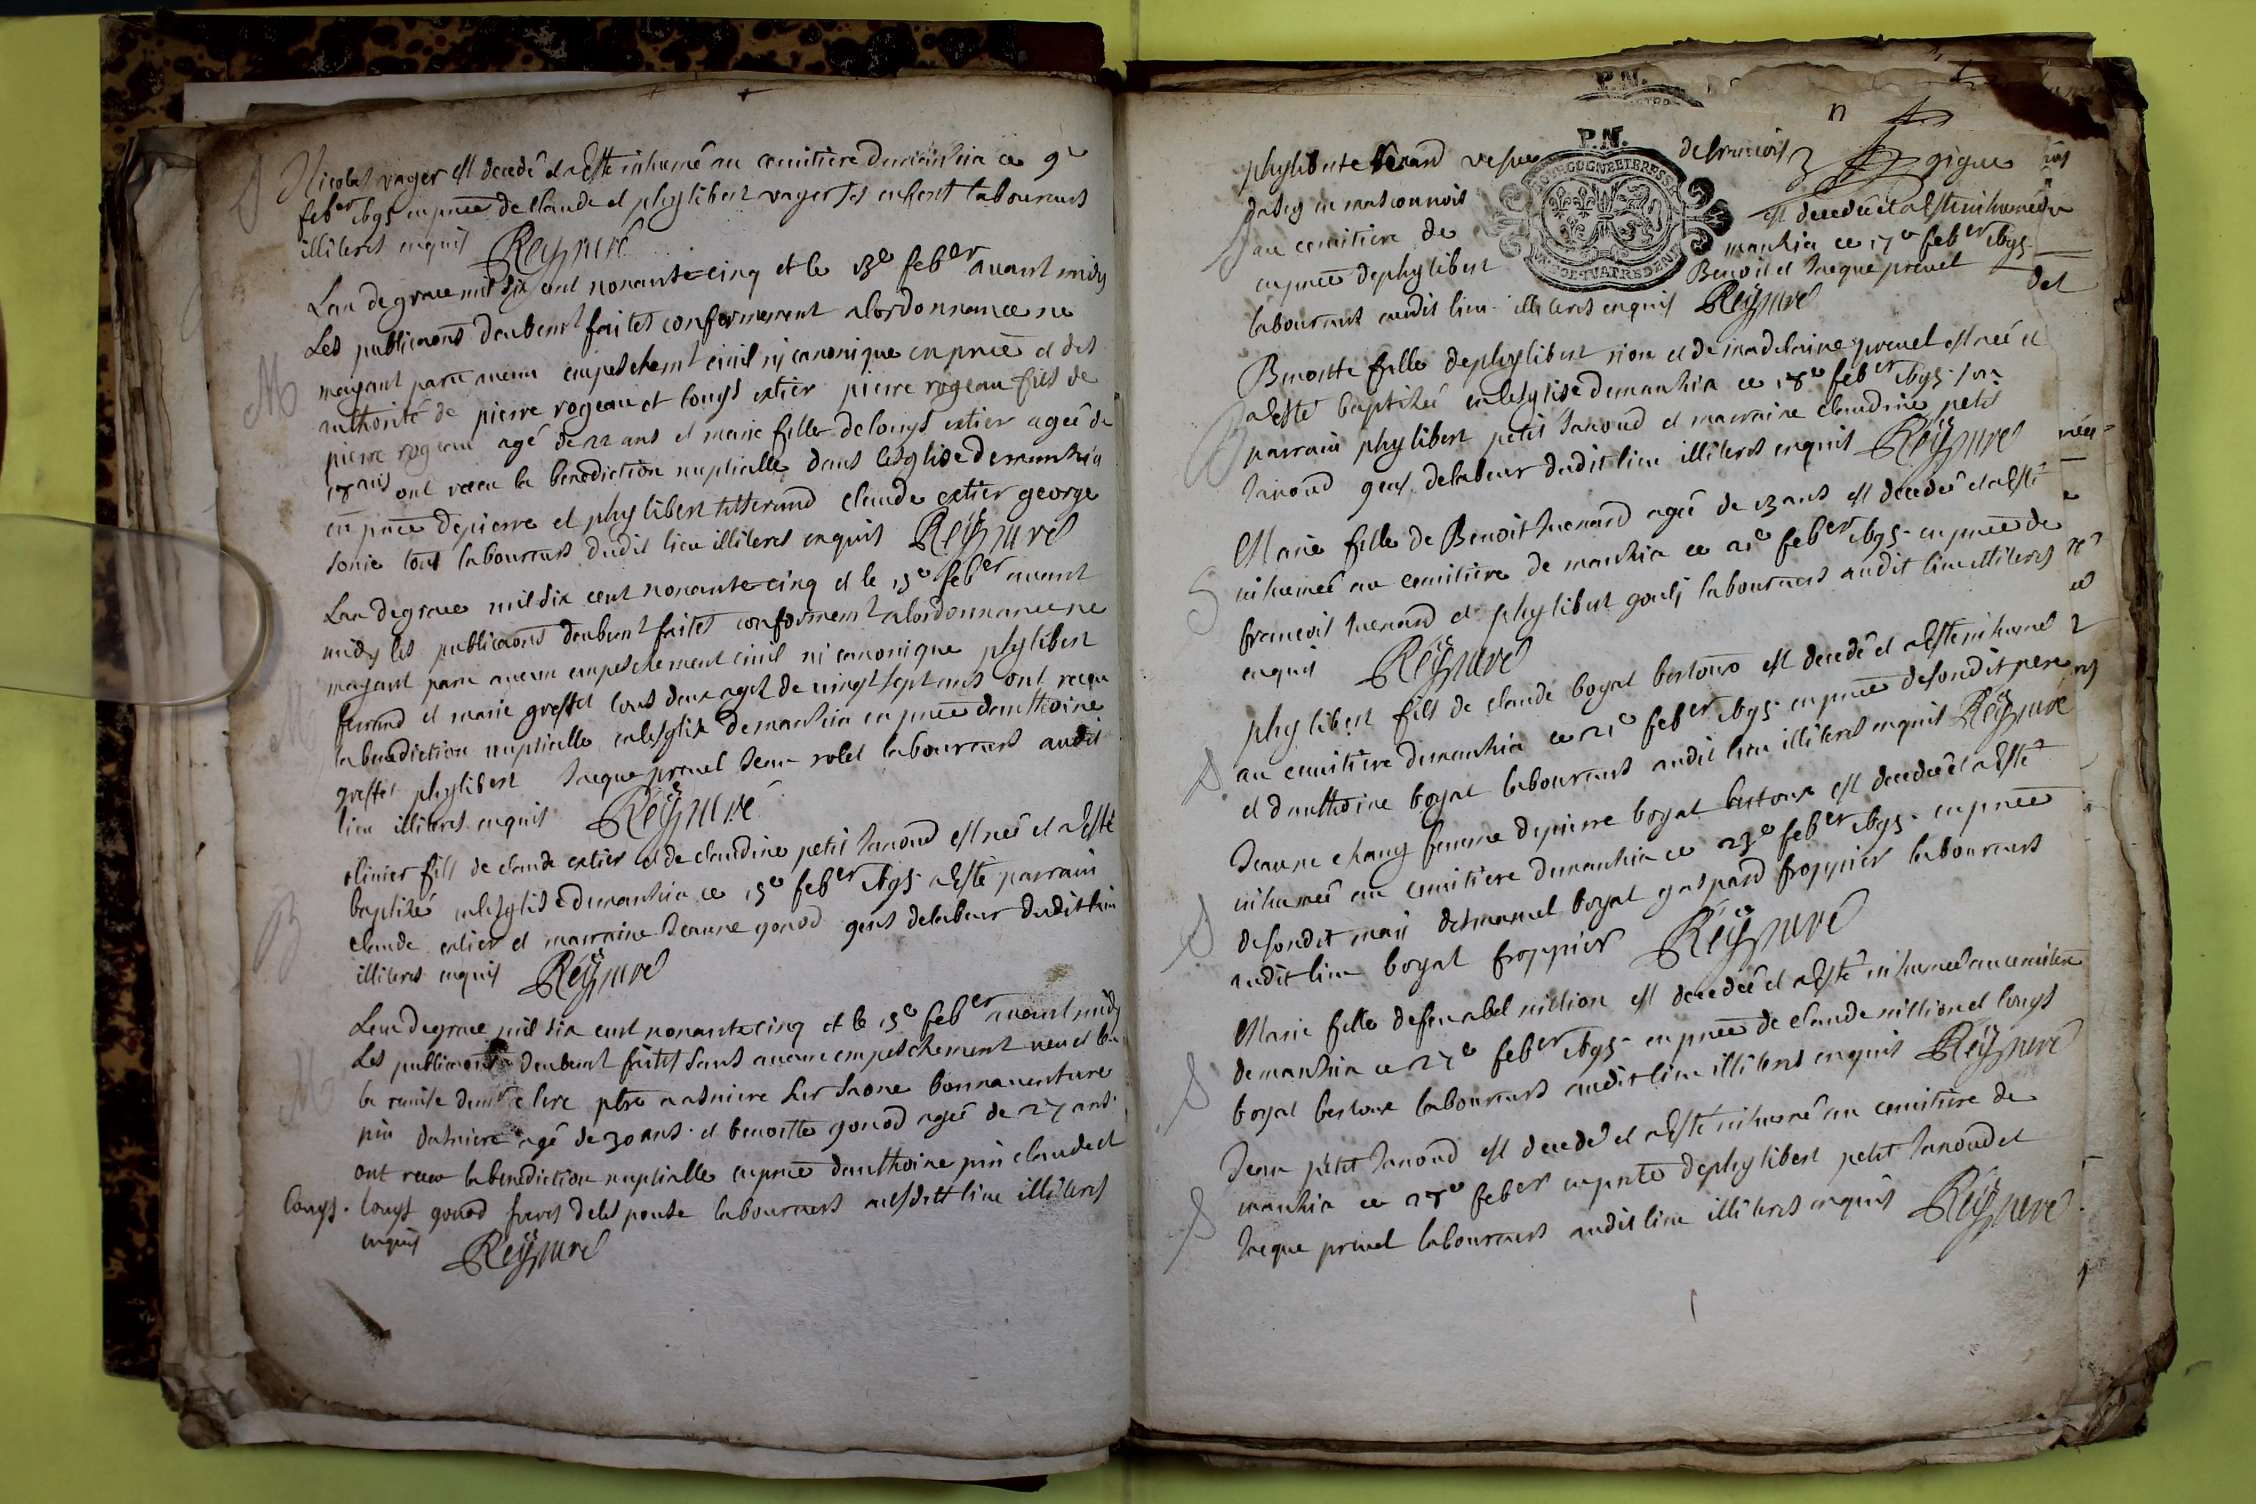 S Nicolas vager est decedé et a Esté inhumé au cemitiere de mankia ce 9e
feber 1695 en pnce de claude et phylibert vager ses enfents laboureurs
illiteres enquis Reyssuré
Lan de grace mil six cent nonante cinq et le 13e feber avant midy
Les publicaons deubemt faites conformement a lordonnance ne
M mayant paru aucun empeschemt civil ny canonique en pnce et des
authorité de pierre rogeau et louys extier pierre rogeau fils de
pierre rogeau agé de 22 ans et marie fille de louys extier ageé de
18 ans ont receu la benediction nuptialle dans lesglise de mankia
en pnce de pierre et phylibert claude extier george
sonie tous laboureurs dudit lieu illiteres enquis Reyssuré
Lan de grace mil six cent nonante cinq et le 15e feber avant
midy les publicaons deubemt faites conformemt a lordonnance ne
mayant paru aucun empeschement civil ni canonique phylibert
M ferrand et marie greffet tous deux agés de vingt sept ans ont receu
la benediction nuptialle en lesglise de mankia en pnce danthoine
greffet phylibert Jacque prevel Jean rolet laboureurs audit
lieu illiteres enquis Reyssuré
olivier fils de claude extier et de claudine petit Janoud est neé et a esté
B baptisé en lesglise de mankia ce 15e feber 1695 a Esté parrain
claude extier et marraine Jeanne gonod gens de labeur dudit lieu
illiteres enquis Reyssuré
Lan de grace mil six cent nonante cinq et le 15e feber avant midy
Les publicaons deubemt faites sans aucun empeschement veu et leu
M la remise de pbre a asniere sur saone bonnaventure
pin dasniere agé de 30 ans et benoitte gonod ageé de 27 ans
ont receu la benediction nuptialle en pnce danthoine pin claude et
louys. louys gonod freres de lespouse laboureurs lieu illiteres
enquis Reyssuré
P.N.
P.N.
phyliberte de francois gigue
en masconnois est decedeé et a Esté inhumeé
S au cemitiere de mankia ce 17e feber 1695
en pnce de phylibert Benoit et Jacque prevel
laboureurs audit lieu illiteres enquis Reyssuré
Benoitte fille de phylibert rion et de madelaine prevel est neé et
B a Esté baptiseé en lesglise de mankia ce 18e feber 1695 son
parrain phylibert petit Janoud et marraine claudine petit
Janoud gens de labeur dudit lieu illiteres enquis Reyssuré
Marie fille de Benoit Juenard ageé de 13 ans est decedeé et a Esté
S inhumeé au cemitiere de mankia ce 21e feber 1695 en pnce de
francois Juenard et phylibert goulj laboureurs audit lieu illiteres
enquis Reyssuré
phylibert fils de claude boyat bestoux est decedé et a Esté inhumé
S au cemitiere de mankia ce 21e feber 1695 en pnce de sondit pere
et danthoine boyat laboureurs audit lieu illiteres enquis Reyssuré
Jeanne chany femme de pierre boyat bestoux est decedeé et a Esté
S inhumeé au cemitiere de mankia ce 23e feber 1695 en pnce
de sondit mary desmanuel boyat gaspard froppier laboureurs
audit lieu boyat froppier Reyssuré
Marie fille de feu abel million est decedeé et a Esté inhumeé au cemitiere
S de mankia ce 27e feber 1695 en pnce de claude million et louys
boyat bestoux laboureurs audit lieu illiteres enquis Reyssuré
Jean petit Janoud est decedé et a Esté inhumé au cemitiere de
S mankia ce 28e feber en pnce de phylibert petit Janoud et
Jacque prevel laboureurs audit lieu illiteres enquis Reyssuré